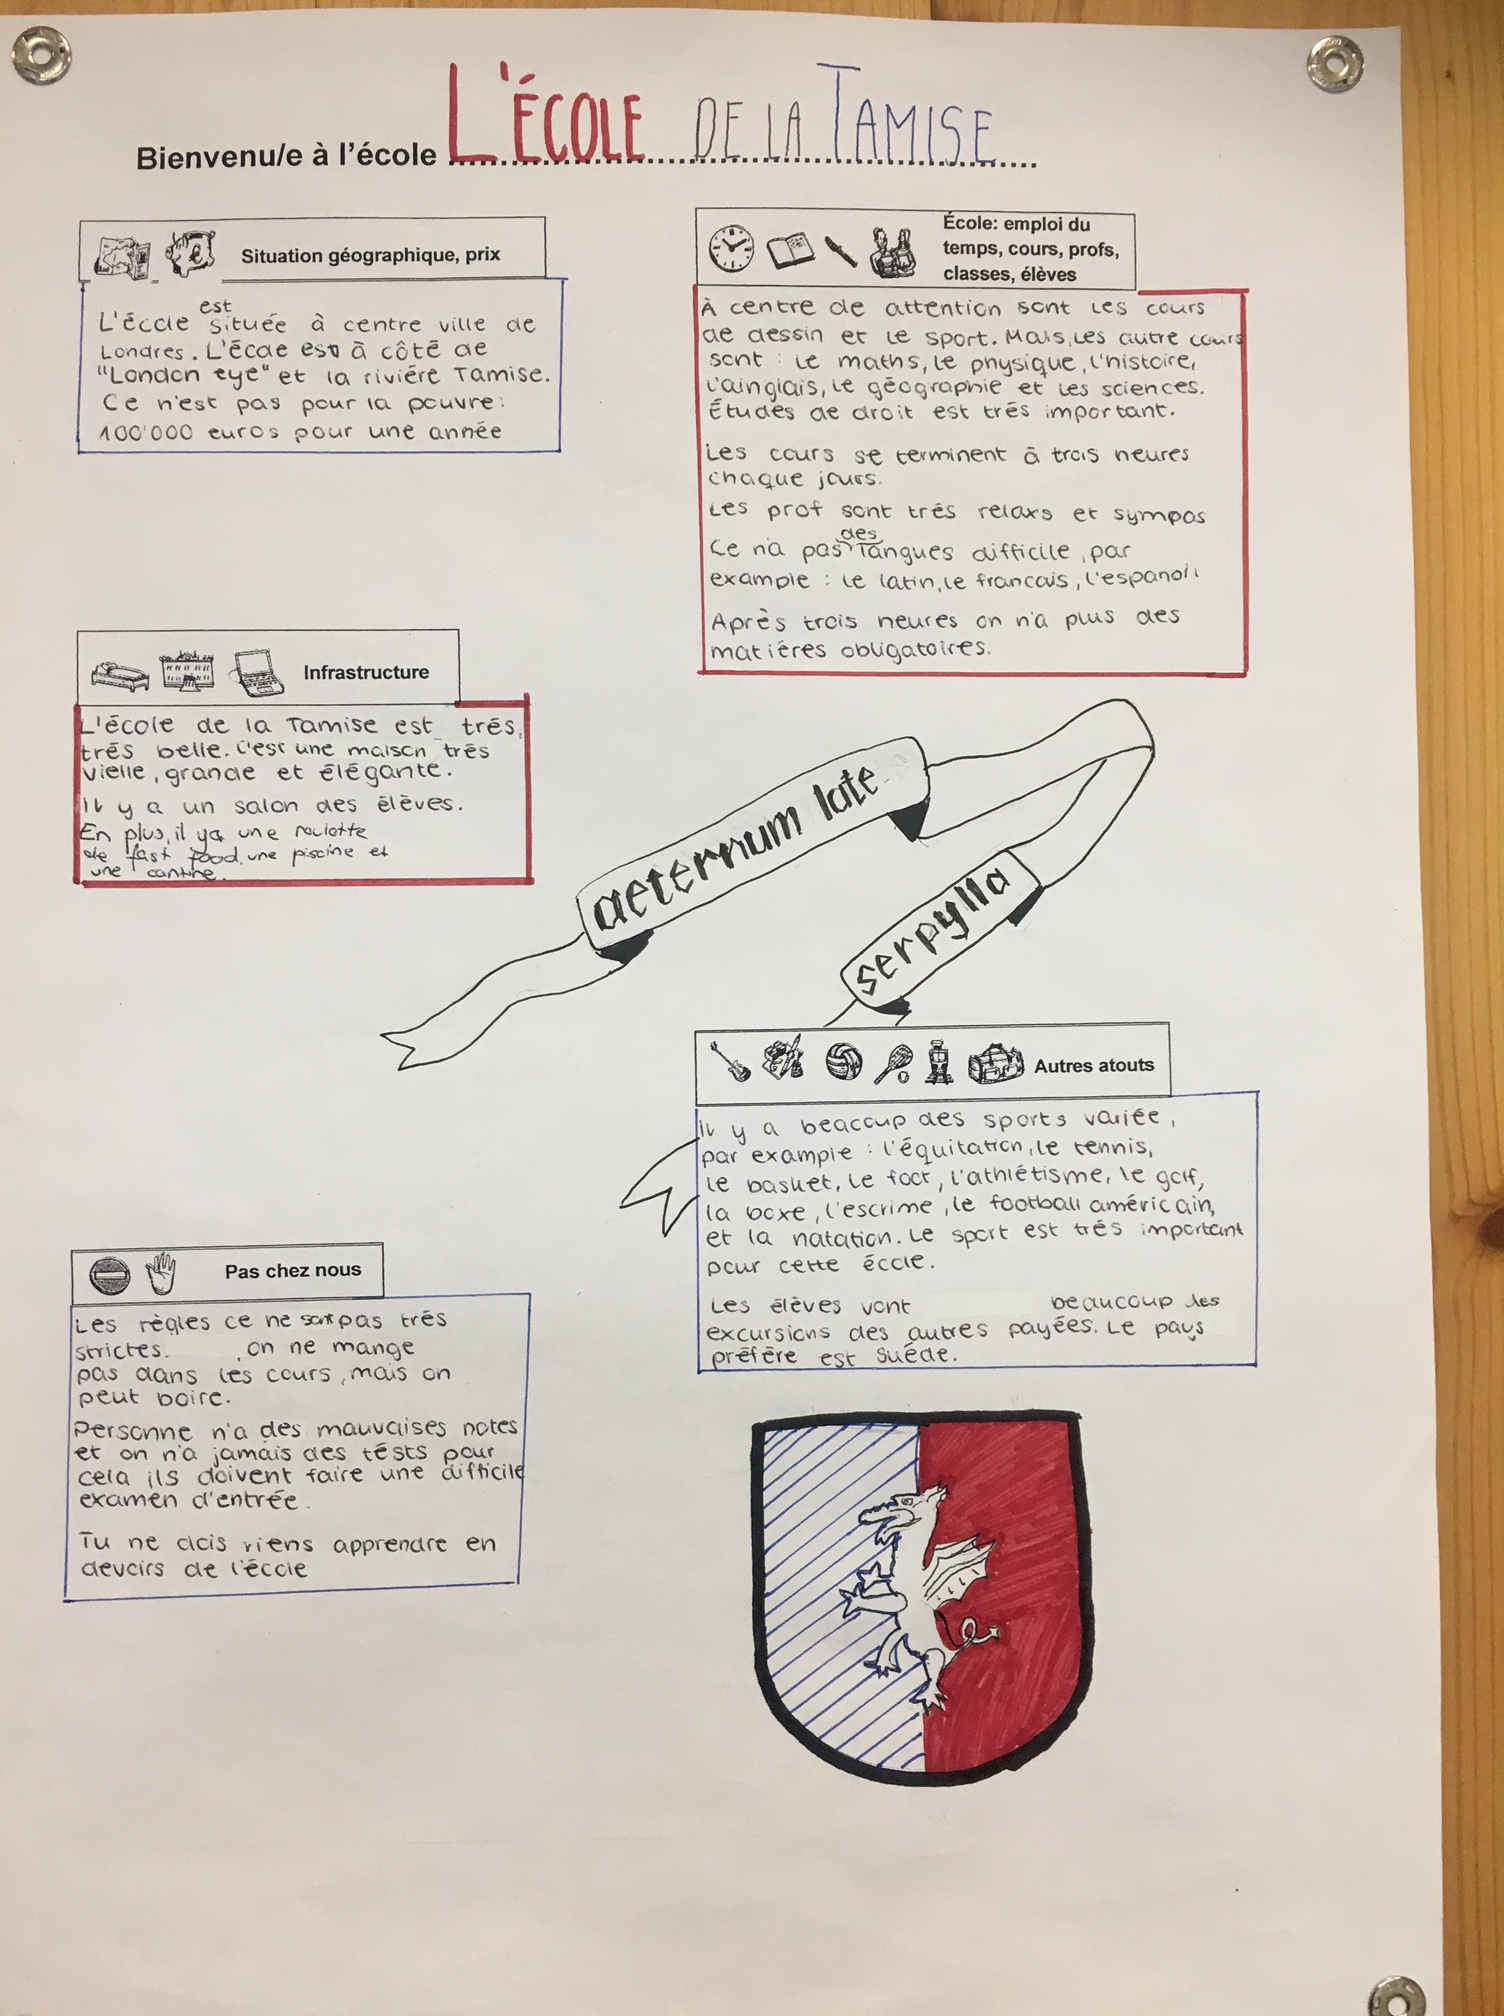 Bienvenu/e à l'école L'ÉCOLE DE LA TAMISE
Situation géographique, prix
L'école est située à centre ville de
Londres. L'école est à côté de
"London eye" et la riviére Tamise.
Ce n'est pas pour la pouvre:
100'000 euros pour une année
École: emploi du
temps, cours, profs,
classes, élèves
À centre de attention sont les cours
de dessin et le sport. Mais les autre cours
sont : le maths, le physique, l'histoire,
l'ainglais, le géographie et les sciences.
Études de droit est trés important.
Les cours se terminent à trois heures
chaque jours.
Les prof sont trés relaxs et sympas
Ce n'a pas des langues difficile, par
example : le latin, le francais, l'espanol
Après trois heures on n'a plus des
matiéres obligatoires.
Infrastructure
L'école de la Tamise est trés,
trés belle. C'est une maison trés
vielle, grande et élégante.
Il y a un salon des élèves.
En plus, il ya une roulotte
de fast food, une piscine et
une cantine.
aeternum late
serpylla
Autres atouts
Il y a beaccup des sports variée,
par example : l'équitation, le tennis,
le basket, le foot, l'athlétisme, le golf,
la boxe, l'escrime, le football américain,
et la natation. Le sport est trés important
pour cette école.
Les élèves vont beaucoup les
excursions des autres payées. Le pays
préfére est Suéde.
Pas chez nous
Les règles ce ne sont pas trés
strictes. , on ne mange
pas dans les cours, mais on
peut boire.
Personne n'a des mauvaises notes
et on n'a jamais des tésts pour
cela ils doivent faire une difficile
examen d'entrée.
Tu ne dois riens apprendre en
devoirs de l'école